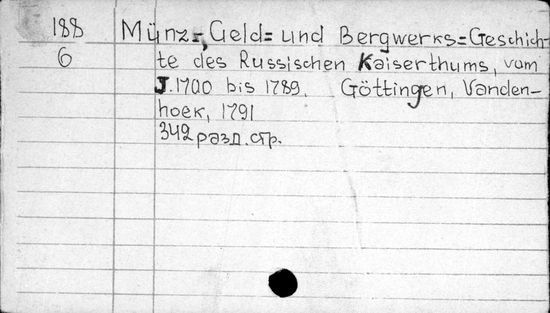 188 Münz=, Geld= und Bergwerks=Geschich-
6 te des Russischen Kaiserthums, vom
J. 1700 bis 1789. Göttingen, Vanden-
hoek, 1791
342 разд. стр.